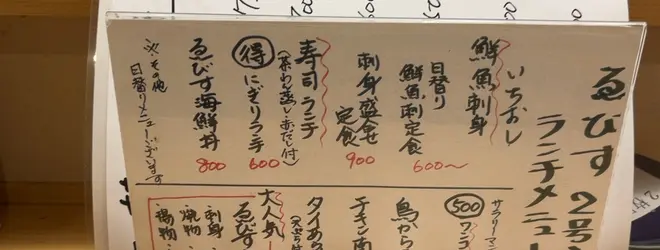 ゑびす 2号
ランチメニュ
いちおし
鮮魚刺身
日替り
鮮魚刺定食
600〜
刺身盛合せ
定食
900
寿司ランチ
(茶わん蒸し・赤だし付)
得 にぎりランチ
600
ゑびす海鮮丼
800
※その他
日替りメニューございます
サラリーマン
500 ワン
鳥から
チキン南
タイあら
大人気
ゑびす
・刺身
・焼物
・揚物